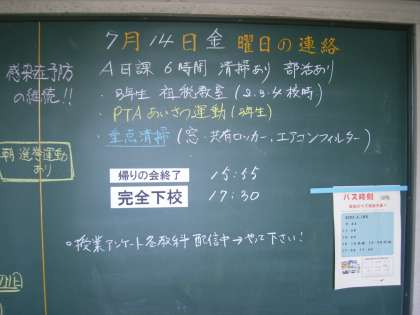 7月14日金曜日の連絡
感染症予防
の継続!!
A日課 6時間 清掃あり 部活あり
・3年生 租税教室(2.3.4校時)
・PTAあいさつ運動(2年生)
・重点清掃(窓・共有ロッカー、エアコンフィルター)
朝 選挙運動
あり
帰りの会終了 15:55
完全下校 17:30
。授業アンケート各教科配信中→やって下さい!
バス時刻